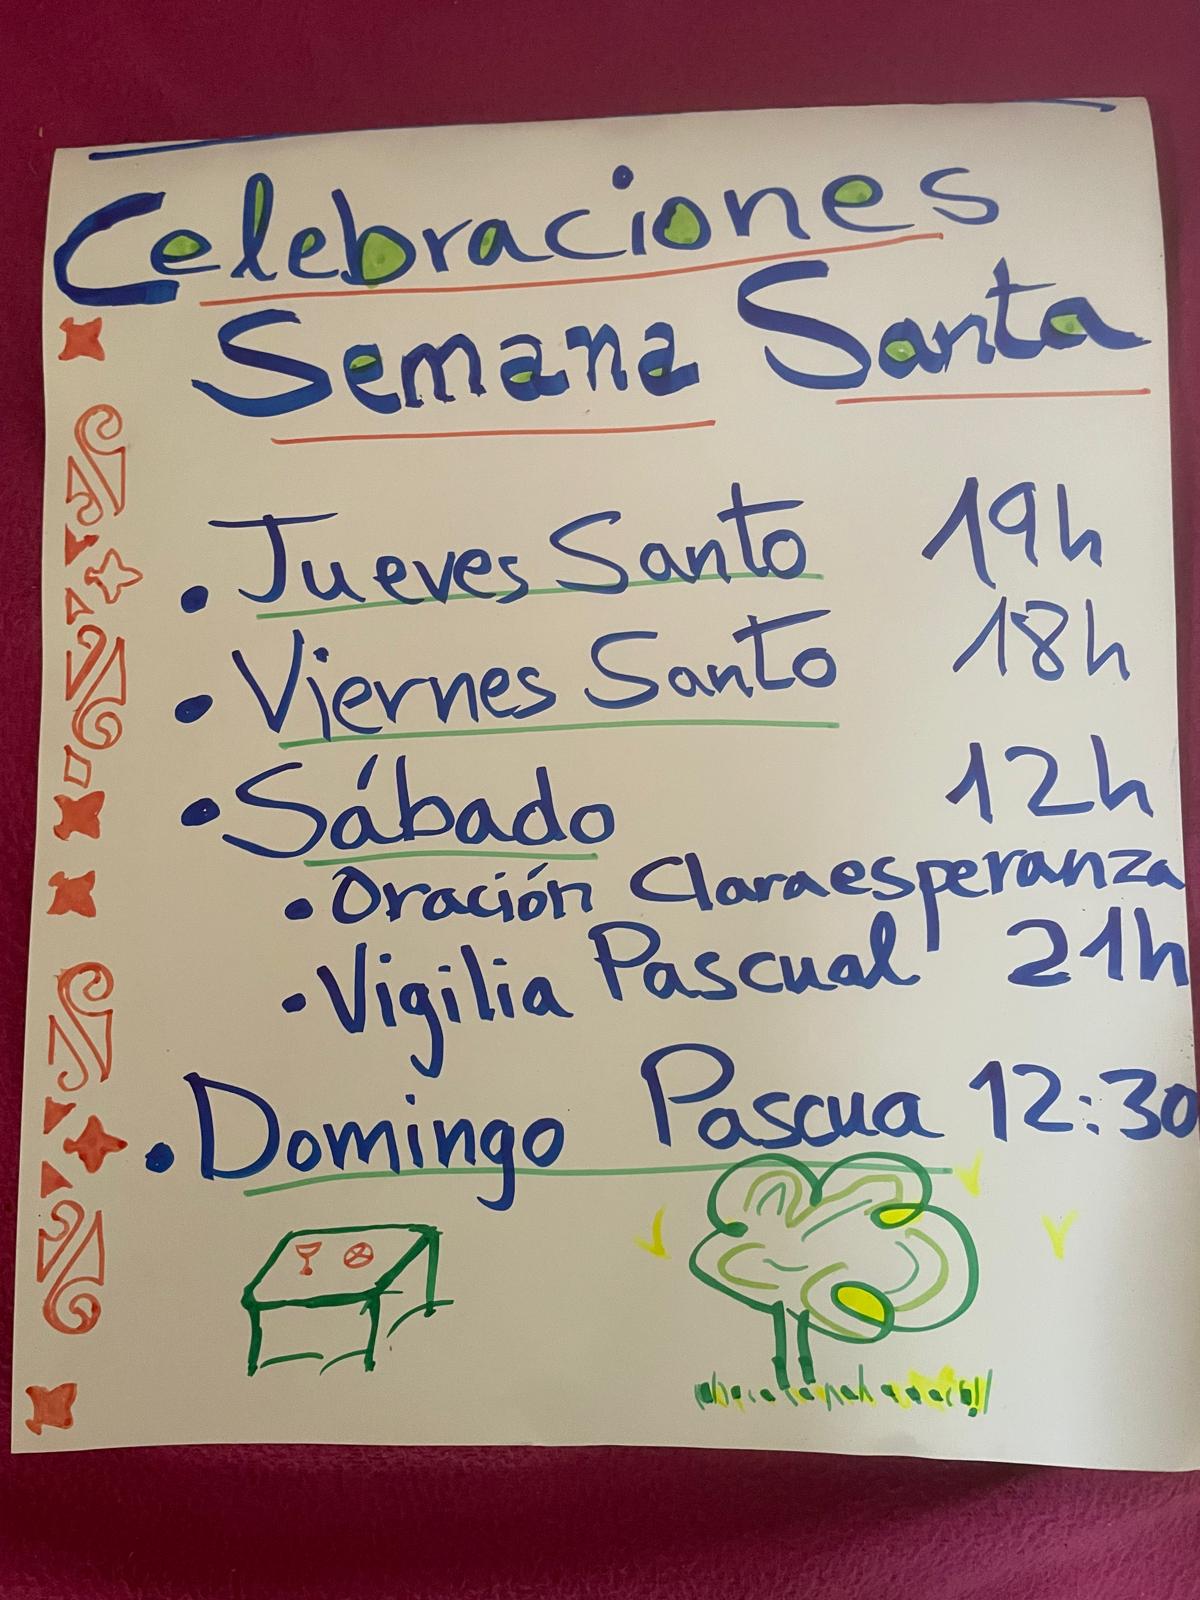 Celebraciones
Semana Santa
• Jueves Santo 19h
• Viernes Santo 18h
• Sábado 12h
• Oración Claraesperanza
• Vigilia Pascual 21h
• Domingo Pascua 12:30